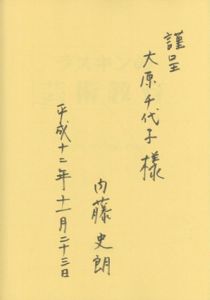 謹呈
大原千代子様
内藤史朗
平成十二年十一月二十三日